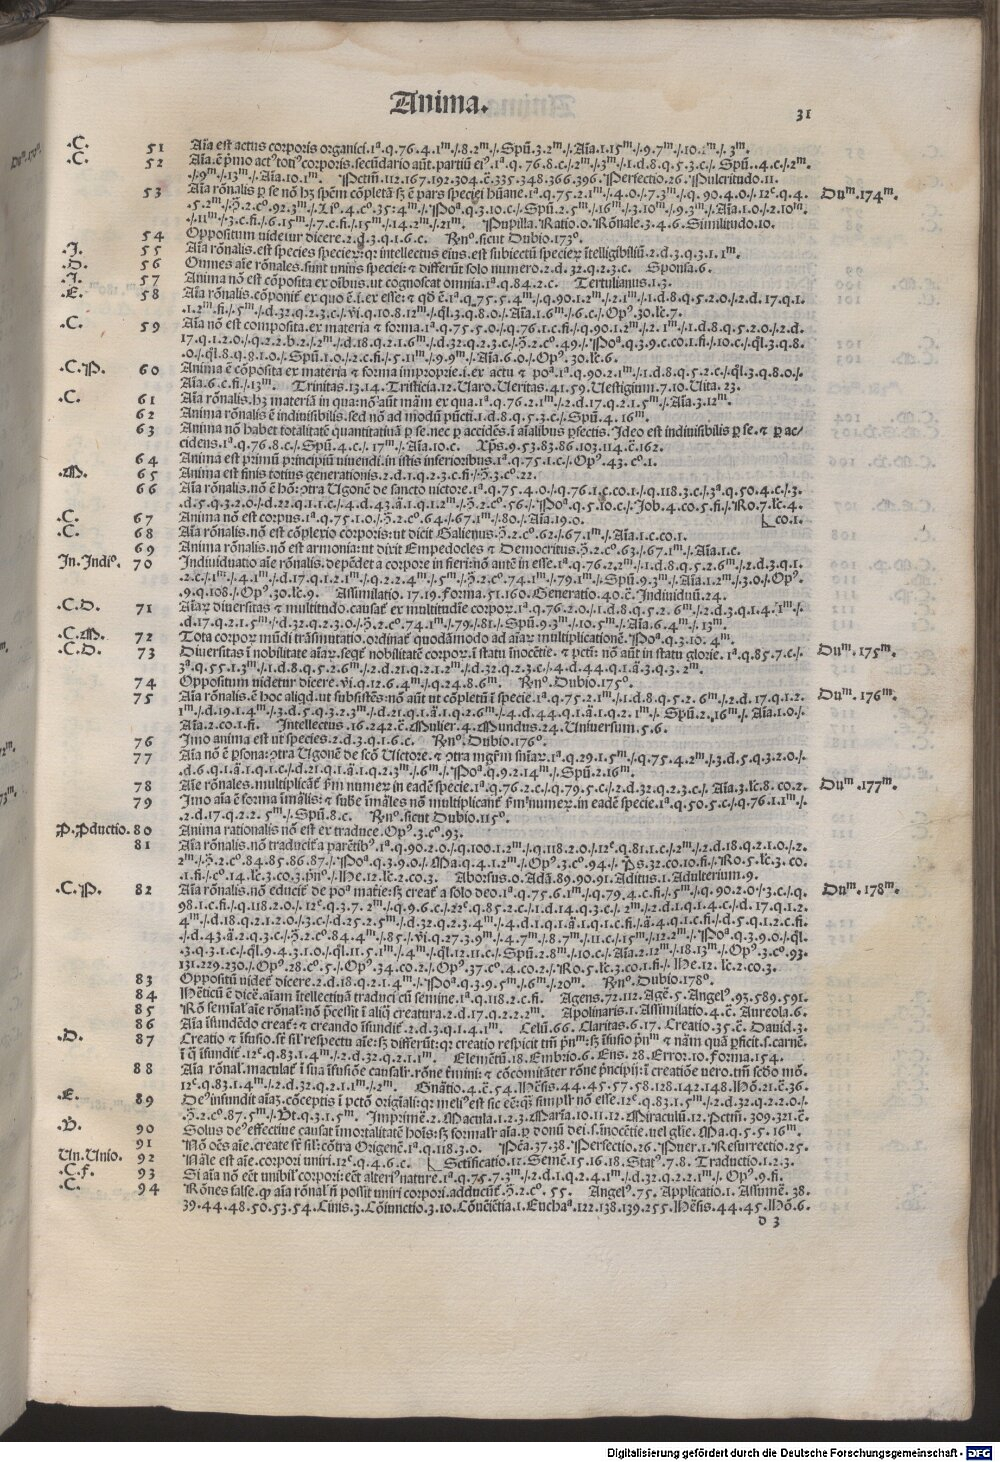 Anima.
31
.C. 51 Aĩa est actus corporis organici.1ª.q.76.4.1ᵐ./.8.2ᵐ./.Spũ.3.2ᵐ./.Aĩa.1.15ᵐ./.9.7ᵐ./.10.2ᵐ./.3ᵐ.
.C. 52 Aĩa.ẽ p̃mo actꝰ totiꝰ corporis.secũdario aũt.partiũ eiꝰ.1ª.q.76.8.c./.2ᵐ./.3ᵐ./.1.d.8.q.5.3.c./.Spũ.4.c./.2ᵐ.
./.9ᵐ./.13ᵐ./.Aĩa.10.1ᵐ. Pctm̃.112.167.192.304.ẽ.335.348.366.396. Perfectio.26. Pulcritudo.11.
53 Aĩa rõnalis ꝑ se nõ hꝫ spẽm cõpletã sꝫ ẽ pars speciei hũane.1ª.q.75.2.1ᵐ./.4.0./.7.3ᵐ./.q.90.4.0./.12ᶜ.q.4. Duᵐ.174ᵐ.
.5.2ᵐ./.Ꝫ.2.cº.92.3ᵐ./.Liº.4.cº.35:4ᵐ./.Poª.q.3.10.c./.Spũ.2.5ᵐ./.16ᵐ./.3.10ᵐ./.9.3ᵐ./.Aĩa.1.0./.2.10ᵐ.
./.11ᵐ./.3.c.fi./.6.15ᵐ./.7.c.fi./.15ᵐ./.14.2ᵐ./.21ᵐ. Pupilla. Ratio.0. Rõnale.3.4.6. Similitudo.10.
54 Oppositum uidetur dicere.2.d.3.q.1.6.c. Rñº.sicut Dubio.173º.
.J. 55 Aĩa rõnalis.est species specieꝝ:qꝛ intellectus eius.est subiectũ specieꝝ ĩtelligibiliũ.2.d.3.q.3.1.1ᵐ.
.D. 56 Omnes aĩe rõnales.sunt unius speciei:⁊ differũt solo numero.2.d.32.q.2.3.c. Sponsa.6.
.J. 57 Anima nõ est cõposita ex oĩbus.ut cognoscat omnia.1ª.q.84.2.c. Tertulianus.1.3.
.E. 58 Aĩa rõnalis.cõponit̃ ex quo ẽ.i.ex esse:⁊ qð ẽ.1ª.q.75.5.4ᵐ./.q.90.1.2ᵐ./.2.1ᵐ./.1.d.8.q.5.2.0./.2.d.17.q.1.
.1.2ᵐ.fi./.5ᵐ./.d.32.q.2.3.c./.vi.q.10.8.12ᵐ./.ql̃.3.q.8.0./.Aĩa.1.6ᵐ./.6.c./.Opº.30.lc̃.7.
.C. 59 Aĩa nõ est composita.ex materia ⁊ forma.1ª.q.75.5.0./.q.76.1.c.fi./.q.90.1.2ᵐ./.2.1ᵐ./.1.d.8.q.5.2.0./.2.d.
17.q.1.2.0./.q.2.2.b.2./.2ᵐ./.d.18.q.2.1.6ᵐ./.d.32.q.2.3.c./.Ꝫ.2.cº.49./.Poª.q.3.9.c.co.1.fi./.10.c./.ql̃.3.q.8.
.0./.ql̃.8.q.8.1.0./.Spũ.1.0./.2.c.fi./.5.11ᵐ./.9.9ᵐ./.Aĩa.6.0./.Opº.30.lc̃.6.
.C.P. 60 Anima ẽ cõposita ex materia ⁊ forma improprie.i.ex actu ⁊ poª.1ª.q.90.2.1ᵐ./.1.d.8.q.5.2.c./.ql̃.3.q.8.0./.
Aĩa.6.c.fi./.13ᵐ. Trinitas.13.14. Tristicia.12. Uaro. Ueritas.41.59. Uestigium.7.10. Uita.23.
.C. 61 Aĩa rõnalis.hꝫ materiã in qua:nõ aũt mãm ex qua.1ª.q.76.2.1ᵐ./.2.d.17.q.2.1.5ᵐ./.Aĩa.3.12ᵐ.
62 Anima rõnalis ẽ indiuisibilis.sed nõ ad modũ pũcti.1.d.8.q.5.3.c./.Spũ.4.16ᵐ.
63 Anima nõ habet totalitatẽ quantitatiuã ꝑ se.nec ꝑ accidẽs.ĩ aĩalibus ꝑfectis.Ideo est indiuisibilis ꝑ se.⁊ ꝑ ac/
cidens.1ª.q.76.8.c./.Spũ.4.c./.17ᵐ./.Aĩa.10.c. Xp̃s.9.53.83.86.103.114.ẽ.162.
64 Anima est primũ principiũ uiuendi.in istis inferioribus.1ª.q.75.1.c./.Opº.43.cº.1.
.M. 65 Anima est finis totius generationis.2.d.1.q.2.3.c.fi./.Ꝫ.3.cº.22.
66 Aĩa rõnalis.nõ ẽ hõ:ↄtra Ugonẽ de sancto uictore.1ª.q.75.4.0./.q.76.1.c.co.1./.q.118.3.c./.3ª.q.50.4.c./.3.
.d.5.q.3.2.0./.d.22.q.1.1.c./.4.d.43.ã.1.q.1.2ᵐ./.Ꝫ.2.cº.56./.Poª.q.5.10.c./.Job.4.co.5.fi./.Ro.7.lc̃.4.
.C. 67 Anima nõ est corpus.1ª.q.75.1.0./.Ꝫ.2.cº.64./.67.1ᵐ./.80./.Aĩa.19.0. co.1.
.C. 68 Aĩa rõnalis.nõ est cõplexio corporis:ut dicit Galienus.Ꝫ.2.cº.62./.67.1ᵐ./.Aĩa.1.c.co.1.
69 Anima rõnalis.nõ est armonia:ut dixit Empedocles ⁊ Democritus.Ꝫ.2.cº.63./.67.1ᵐ./.Aĩa.1.c.
In.Indiº. 70 Indiuiduatio aĩe rõnalis.depẽdet a corpore in fieri:nõ autẽ in esse.1ª.q.76.2.2ᵐ./.1.d.8.q.5.2.6ᵐ./.2.d.3.q.1.
.2.c./.1ᵐ./.4.1ᵐ./.d.17.q.1.2.1ᵐ./.q.2.2.4ᵐ./.5ᵐ./.Ꝫ.2.cº.74.1ᵐ./.79.1ᵐ./.Spũ.9.3ᵐ./.Aĩa.1.2ᵐ./.3.0./.Opº.
.9.q.108./.Opº.30.lc̃.9. Assimilatio.17.19. Forma.51.160. Generatio.40.ẽ. Indiuiduũ.24.
.C.D. 71 Aĩaꝝ diuersitas ⁊ multitudo.causat̃ ex multitudĩe corpoꝝ.1ª.q.76.2.0./.1.d.8.q.5.2.6ᵐ./.2.d.3.q.1.4.1ᵐ./.
.d.17.q.2.1.5ᵐ./.d.32.q.2.3.0./.Ꝫ.2.cº.74.1ᵐ./.79./.81./.Spũ.9.3ᵐ./.10.5ᵐ./.Aĩa.6.4ᵐ./.13ᵐ.
.C.M. 72 Tota corpoꝝ mũdi trãsmutatio.ordinat̃ quodãmodo ad aĩaꝝ multiplicationẽ.Poª.q.3.10.4ᵐ.
.C.D. 73 Diuersitas ĩ nobilitate aĩaꝝ.seqt̃ nobilitatẽ corpoꝝ.ĩ statu ĩnocẽtie.⁊ pcti:nõ aũt in statu glorie.1ª.q.85.7.c./. Duᵐ.175ᵐ.
3ª.q.55.1.3ᵐ./.1.d.8.q.5.2.6ᵐ./.2.d.21.q.2.1.2ᵐ./.d.32.q.2.3.c./.4.d.44.q.1.ã.3.q.3.2ᵐ.
74 Oppositum uidetur dicere.vi.q.12.6.4ᵐ./.q.24.8.6ᵐ. Rñº.Dubio.175º.
75 Aĩa rõnalis.ẽ hoc aliqd.ut subsistẽs:nõ aũt ut cõpletũ ĩ specie.1ª.q.75.2.1ᵐ./.1.d.8.q.5.2.6ᵐ./.2.d.17.q.1.2. Duᵐ.176ᵐ.
1ᵐ./.d.19.1.4ᵐ./.3.d.5.q.3.2.3ᵐ./.d.21.q.1.ã.1.q.2.6ᵐ./.4.d.44.q.1.ã.1.q.2.1ᵐ./.Spũ.2.16ᵐ./.Aĩa.1.0./.
Aĩa.2.co.1.fi. Intellectus.16.242.ẽ. Mulier.4. Mundus.24. Uniuersum.5.6.
76 Imo anima est ut species.2.d.3.q.1.6.c. Rñº.Dubio.176º.
77 Aĩa nõ ẽ ꝑsona:ↄtra Ugonẽ de scõ Uictore.⁊ ↄtra mgr̃m sniaꝝ.1ª.q.29.1.5ᵐ./.q.75.4.2ᵐ./.3.d.5.q.3.2.0./.
.d.6.q.1.ã.1.q.1.c./.d.21.q.1.ã.1.q.2.3ᵐ./.6ᵐ./.Poª.q.9.2.14ᵐ./.Spũ.2.16ᵐ.
78 Aĩe rõnales.multiplicãt̃ p̃m numeꝝ in eadẽ specie.1ª.q.76.2.c./.q.79.5.c./.2.d.32.q.2.3.c./.Aĩa.3.lc̃.8.co.2. Duᵐ.177ᵐ.
79 Imo aĩa ẽ forma ĩmãlis:⁊ subẽ ĩmãles nõ multiplicant̃ p̃m numeꝝ.in eadẽ specie.1ª.q.50.5.c./.q.76.1.1ᵐ./.
.2.d.17.q.2.2.5ᵐ./.Spũ.8.c. Rñº.sicut Dubio.115º.
P.Pductio. 80 Anima rationalis nõ est ex traduce.Opº.3.cº.93.
81 Aĩa rõnalis.nõ traducit̃ a parẽtibꝰ.1ª.q.90.2.0./.q.100.1.2ᵐ./.q.118.2.0./.12ᶜ.q.81.1.c./.2ᵐ./.2.d.18.q.2.1.0./.2.
2ᵐ./.Ꝫ.2.cº.84.85.86.87./.Poª.q.3.9.0./.Ma.q.4.1.2ᵐ./.Opº.3.cº.94./.Ps.32.co.10.fi./.Ro.5.lc̃.3.co.
.1.fi./.cº.14.lc̃.3.co.3.p̃nº./.He.12.lc̃.2.co.3. Aborsus.0. Adã.89.90.91. Aditus.1. Adulterium.9.
.C.P. 82 Aĩa rõnalis.nõ educit̃ de poª matie:sꝫ creat̃ a solo deo.1ª.q.75.6.1ᵐ./.q.79.4.c.fi./.5ᵐ./.q.90.2.0./.3.c./.q. Duᵐ.178ᵐ.
98.1.c.fi./.q.118.2.0./.12ᶜ.q.3.7.2ᵐ./.q.9.6.c./.22ᶜ.q.85.2.c./.1.d.14.q.3.c./.2ᵐ./.2.d.1.q.1.4.c./.d.17.q.1.2.
4ᵐ./.d.18.q.2.1.2.0./.3.c./.d.25.2.5ᵐ./.d.32.q.2.3.4ᵐ./.4.d.1.q.1.ã.1.q.1.c.fi./.ã.4.q.1.c.fi./.d.5.q.1.2.c.fi.
./.d.43.ã.2.q.3.c./.Ꝫ.2.cº.84.4ᵐ./.85./.vi.q.27.3.9ᵐ./.4.7ᵐ./.8.7ᵐ./.11.c./.15ᵐ./.12.2ᵐ./.Poª.q.3.9.0./.ql̃.
.3.q.3.1.c./.ql̃.9.4.3.1.0./.ql̃.11.5.1ᵐ./.4ᵐ./.ql̃.12.11.c./.Spũ.2.8ᵐ./.10.c./.Aĩa.2.12ᵐ./.18.13ᵐ./.Opº.3.cº.93.
131.229.230./.Opº.28.cº.5./.Opº.34.co.2./.Opº.37.cº.4.co.2./.Ro.5.lc̃.3.co.1.fi./.He.12.lc̃.2.co.3.
83 Oppositũ uidet̃ dicere.2.d.18.q.2.1.4ᵐ./.Poª.q.3.9.5ᵐ./.6ᵐ./.20ᵐ. Rñº.Dubio.178º.
84 Hẽticũ ẽ dicẽ.aĩam ĩtellectiuã traduci cũ semine.1ª.q.118.2.c.fi. Agens.72.112. Agẽ.5. Angelꝰ.93.589.591.
85 Rõ semĩal̃ aĩe rõnal̃:nõ p̃cessit ĩ aliq̃ creatura.2.d.17.q.2.2.2ᵐ. Apolinaris.1. Assimilatio.4.ẽ. Aureola.6.
86 Aĩa ĩfundẽdo creat̃:⁊ creando ĩfundit̃.2.d.3.q.1.4.1ᵐ. Celũ.66. Claritas.6.17. Creatio.35.ẽ. Dauid.3.
.D. 87 Creatio ⁊ ĩfusio.st̃ sil̃ respectu aĩe:sꝫ differũt:qꝛ creatio respicit tm̃ p̃nᵐ:sꝫ ĩfusio p̃nᵐ ⁊ nãm quã ꝑficit.s.carnẽ.
ĩ q̃ ĩfundit̃.12ᶜ.q.83.1.4ᵐ./.2.d.32.q.2.1.1ᵐ. Elemẽtũ.18. Embrio.6. Ens.28. Error.10. Forma.154.
88 Aĩa rõnal̃.maculat̃ ĩ sua ĩfusiõe causalr̃.rõne t̃mini:⁊ cõcomitãter rõne p̃ncipij:ĩ creatiõe uero.tm̃ scðo mõ.
12ᶜ.q.83.1.4ᵐ./.2.d.32.q.2.1.1ᵐ./.2ᵐ. Gnãtio.4.ẽ.54. Hẽsis.44.45.57.58.128.142.148. Hõ.21.ẽ.36.
.E. 89 Deꝰ infundit aĩaꝫ.cõceptis ĩ pctõ origĩali:qꝛ meliꝰ est sic eẽ:q̃ꝫ simplr̃ nõ esse.12ᶜ.q.83.1.5ᵐ./.2.d.32.q.2.2.0./.
.Ꝫ.2.cº.87.5ᵐ./.Vt.q.3.1.5ᵐ. Imprimẽ.2. Macula.1.2.3. Maria.10.11.12. Miraculũ.12. Pctm̃.309.321.ẽ.
.B. 90 Solus deꝰ effectiue causat ĩmortalitatẽ hoĩs:sꝫ formalr̃ aĩa.ꝑ donũ dei.s.ĩnocẽtie.uel glie.Ma.q.5.5.16ᵐ.
91 Nõ oẽs aĩe.create st̃ sil̃:cõtra Origenẽ.1ª.q.118.3.0. Pẽa.37.38. Perfectio.26. Puer.1. Resurrectio.25.
Un.Unio. 92 Nãle est aĩe.corpori uniri.12ᶜ.q.4.6.c. Sctificatio.17. Semẽ.15.16.18. Statꝰ.7.8. Traductio.1.2.3.
.C.f. 93 Si aĩa nõ eẽt unibil̃ corpori:eẽt alteriꝰ nature.1ª.q.75.7.3ᵐ./.2.d.1.q.2.4.1ᵐ./.d.32.q.2.2.1ᵐ./.Opº.9.fi.
.C. 94 Rõnes false.qp̃ aĩa rõnal̃ ñ possit uniri corpori.adducũt̃.Ꝫ.2.cº.55. Angelꝰ.75. Applicatio.1. Assumẽ.38.
39.44.48.50.53.54. Cinis.3. Cõiunctio.3.10. Cõuẽiẽtia.1. Euchaª.122.138.139.255. Hẽsis.44.45. Hõ.6.
d 3
Digitalisierung gefördert durch die Deutsche Forschungsgemeinschaft - DFG